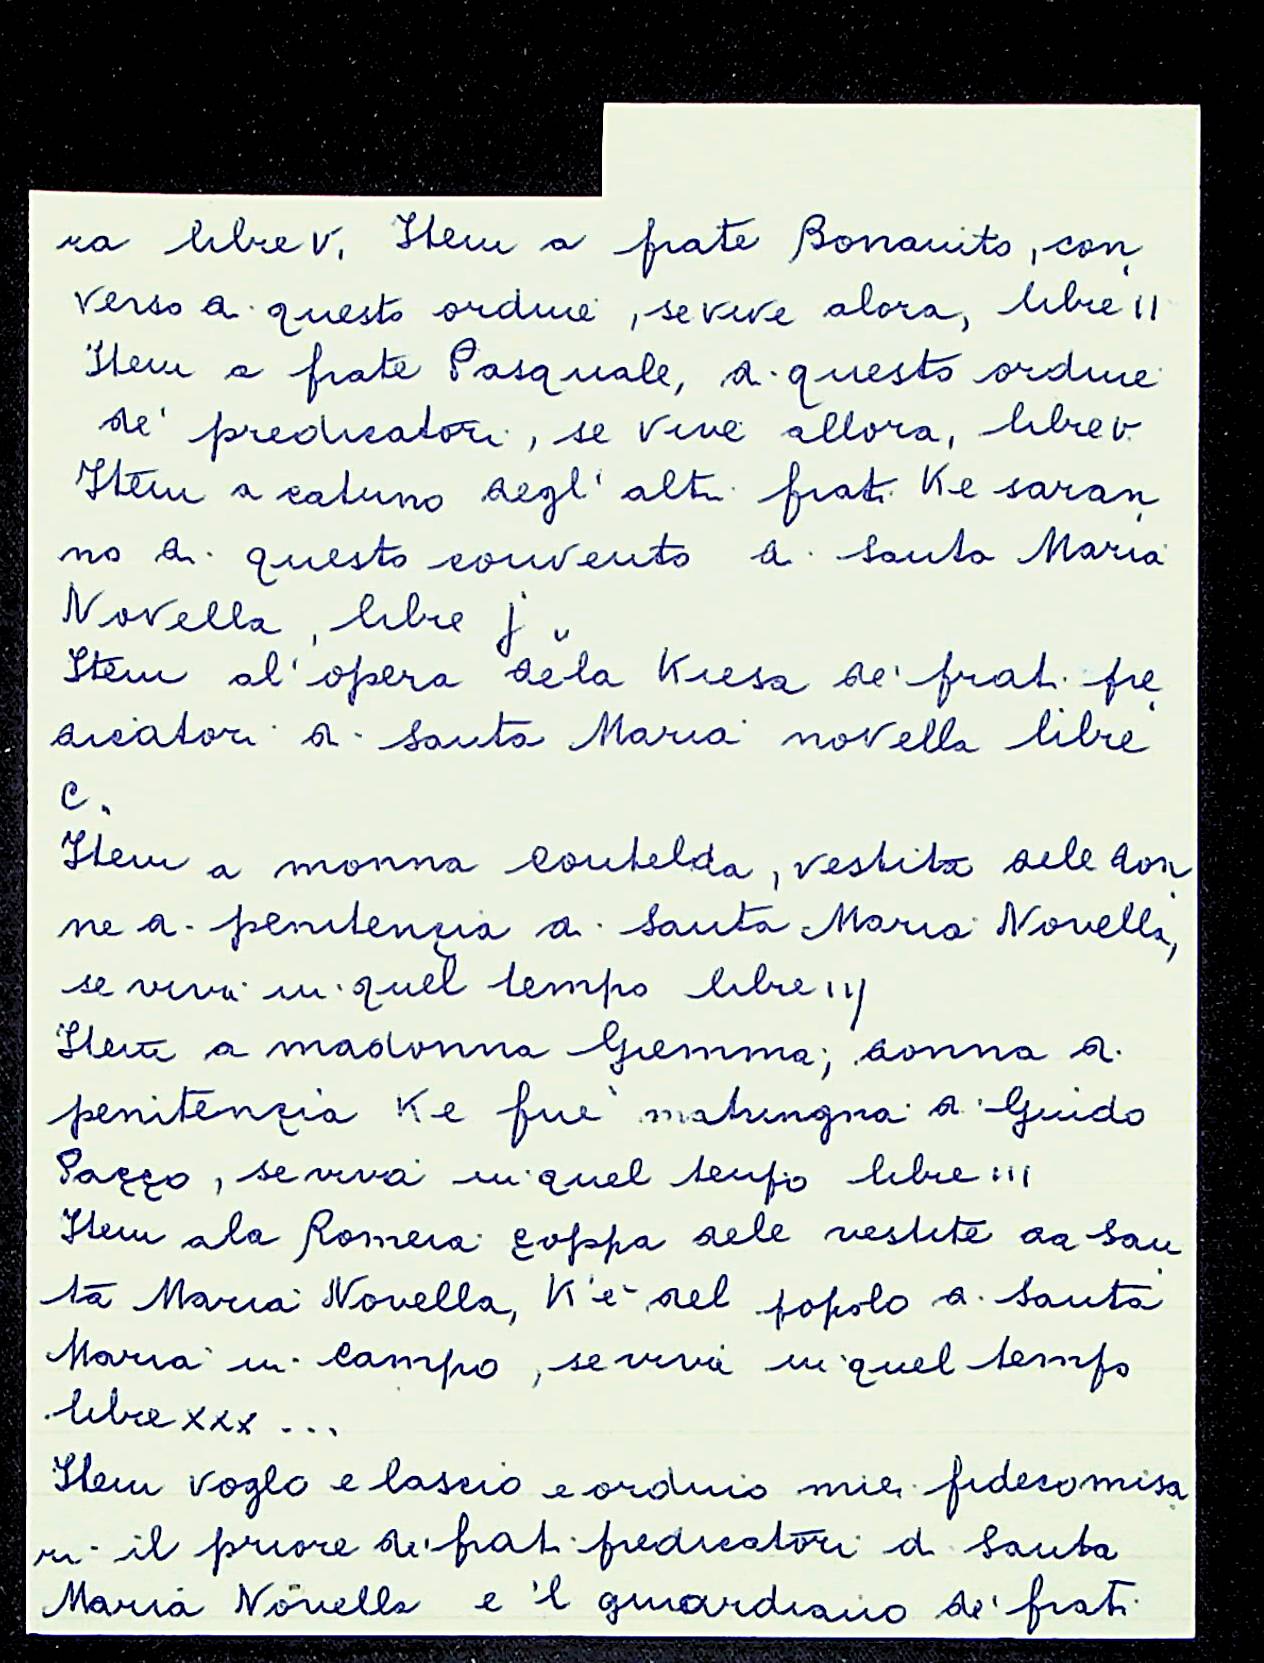 ra libre v. Item a frate Bonanito, con
verso di questo ordine, se vive alora, libre II
Item a frate Pasquale, di questo ordine
de' predicatori, se vive allora, libre v.
Item a catuno degl' altri frati Ke saran
no di questo convento di Santa Maria
Novella, libre j
Item al' opera dela Kiesa de' frati pre
dicatori di Santa Maria novella libre
C.
Item a monna Contelda, vestita dele don
ne di penitençia di Santa Maria Novella,
se viva in quel tempo libre iij
Item a madonna Giemma, donna di
penitençia Ke fue matringna di Guido
Paçço, se viva in quel tenpo libre III
Item ala Romeia çoppa dele vestite da San
ta Maria Novella, K'è del popolo di Santa
Maria in Campo, se viva in quel tempo
libre xxx ...
Item voglo e lascio e ordino miei fidecomisa
ri il priore de' frati predicatori di Santa
Maria Novella e 'l guardiano de' frati